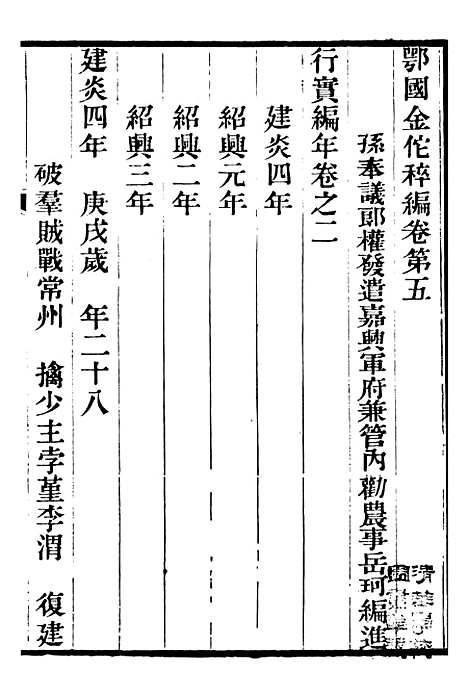 鄂國金佗稡編卷第五
孫奉議郎權發遣嘉興軍府兼管內勸農事岳珂編進
行實編年卷之二
建炎四年
紹興元年
紹興二年
紹興三年
建炎四年 庚戌歲 年二十八
破羣賊戰常州 擒少主孛堇李渭 復建